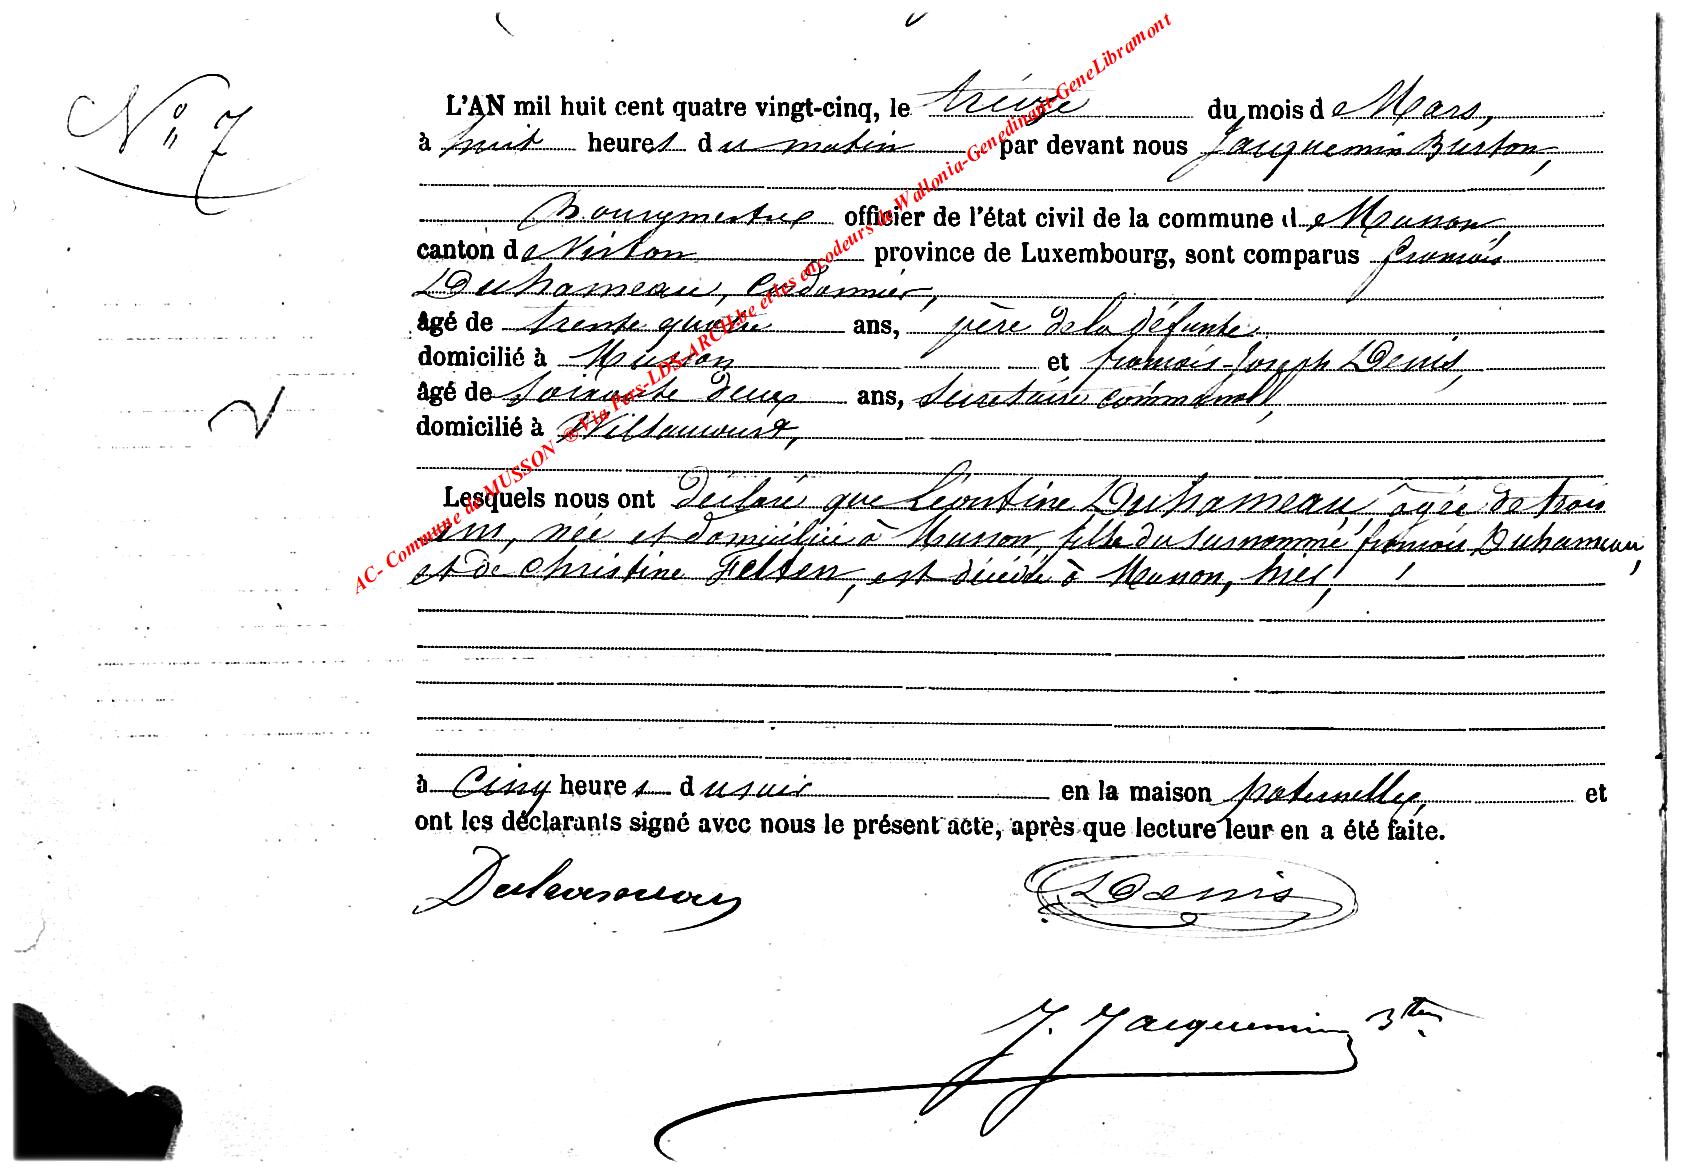 N° 7
L'AN mil huit cent quatre vingt-cinq, le treize du mois de Mars,
à huit heures du matin par devant nous Jacquemin Burton,
Bourgmestre officier de l'état civil de la commune de Musson,
canton de Virton province de Luxembourg, sont comparus françois
Duhameau, Cordonnier,
âgé de trente quatre ans, père de la défunte
domicilié à Musson et françois-Joseph Denis,
âgé de soixante deux ans, secrétaire communal,
domicilié à Willancourt,
Lesquels nous ont déclaré que Léontine Duhameau, agée de trois
ans, née et domiciliée à Musson, fille du susnommé françois Duhameau,
et de Christine Felten, est décédée à Musson, hier,
à cinq heures du soir en la maison paternelle, et
ont les déclarants signé avec nous le présent acte, après que lecture leur en a été faite.
Duhameau Denis
J. Jacquemin Bton
AC- Commune de MUSSON ®Via Pers-LDS-ARCH.be et les encodeurs de Wallonia-Genedinant-GeneLibramont